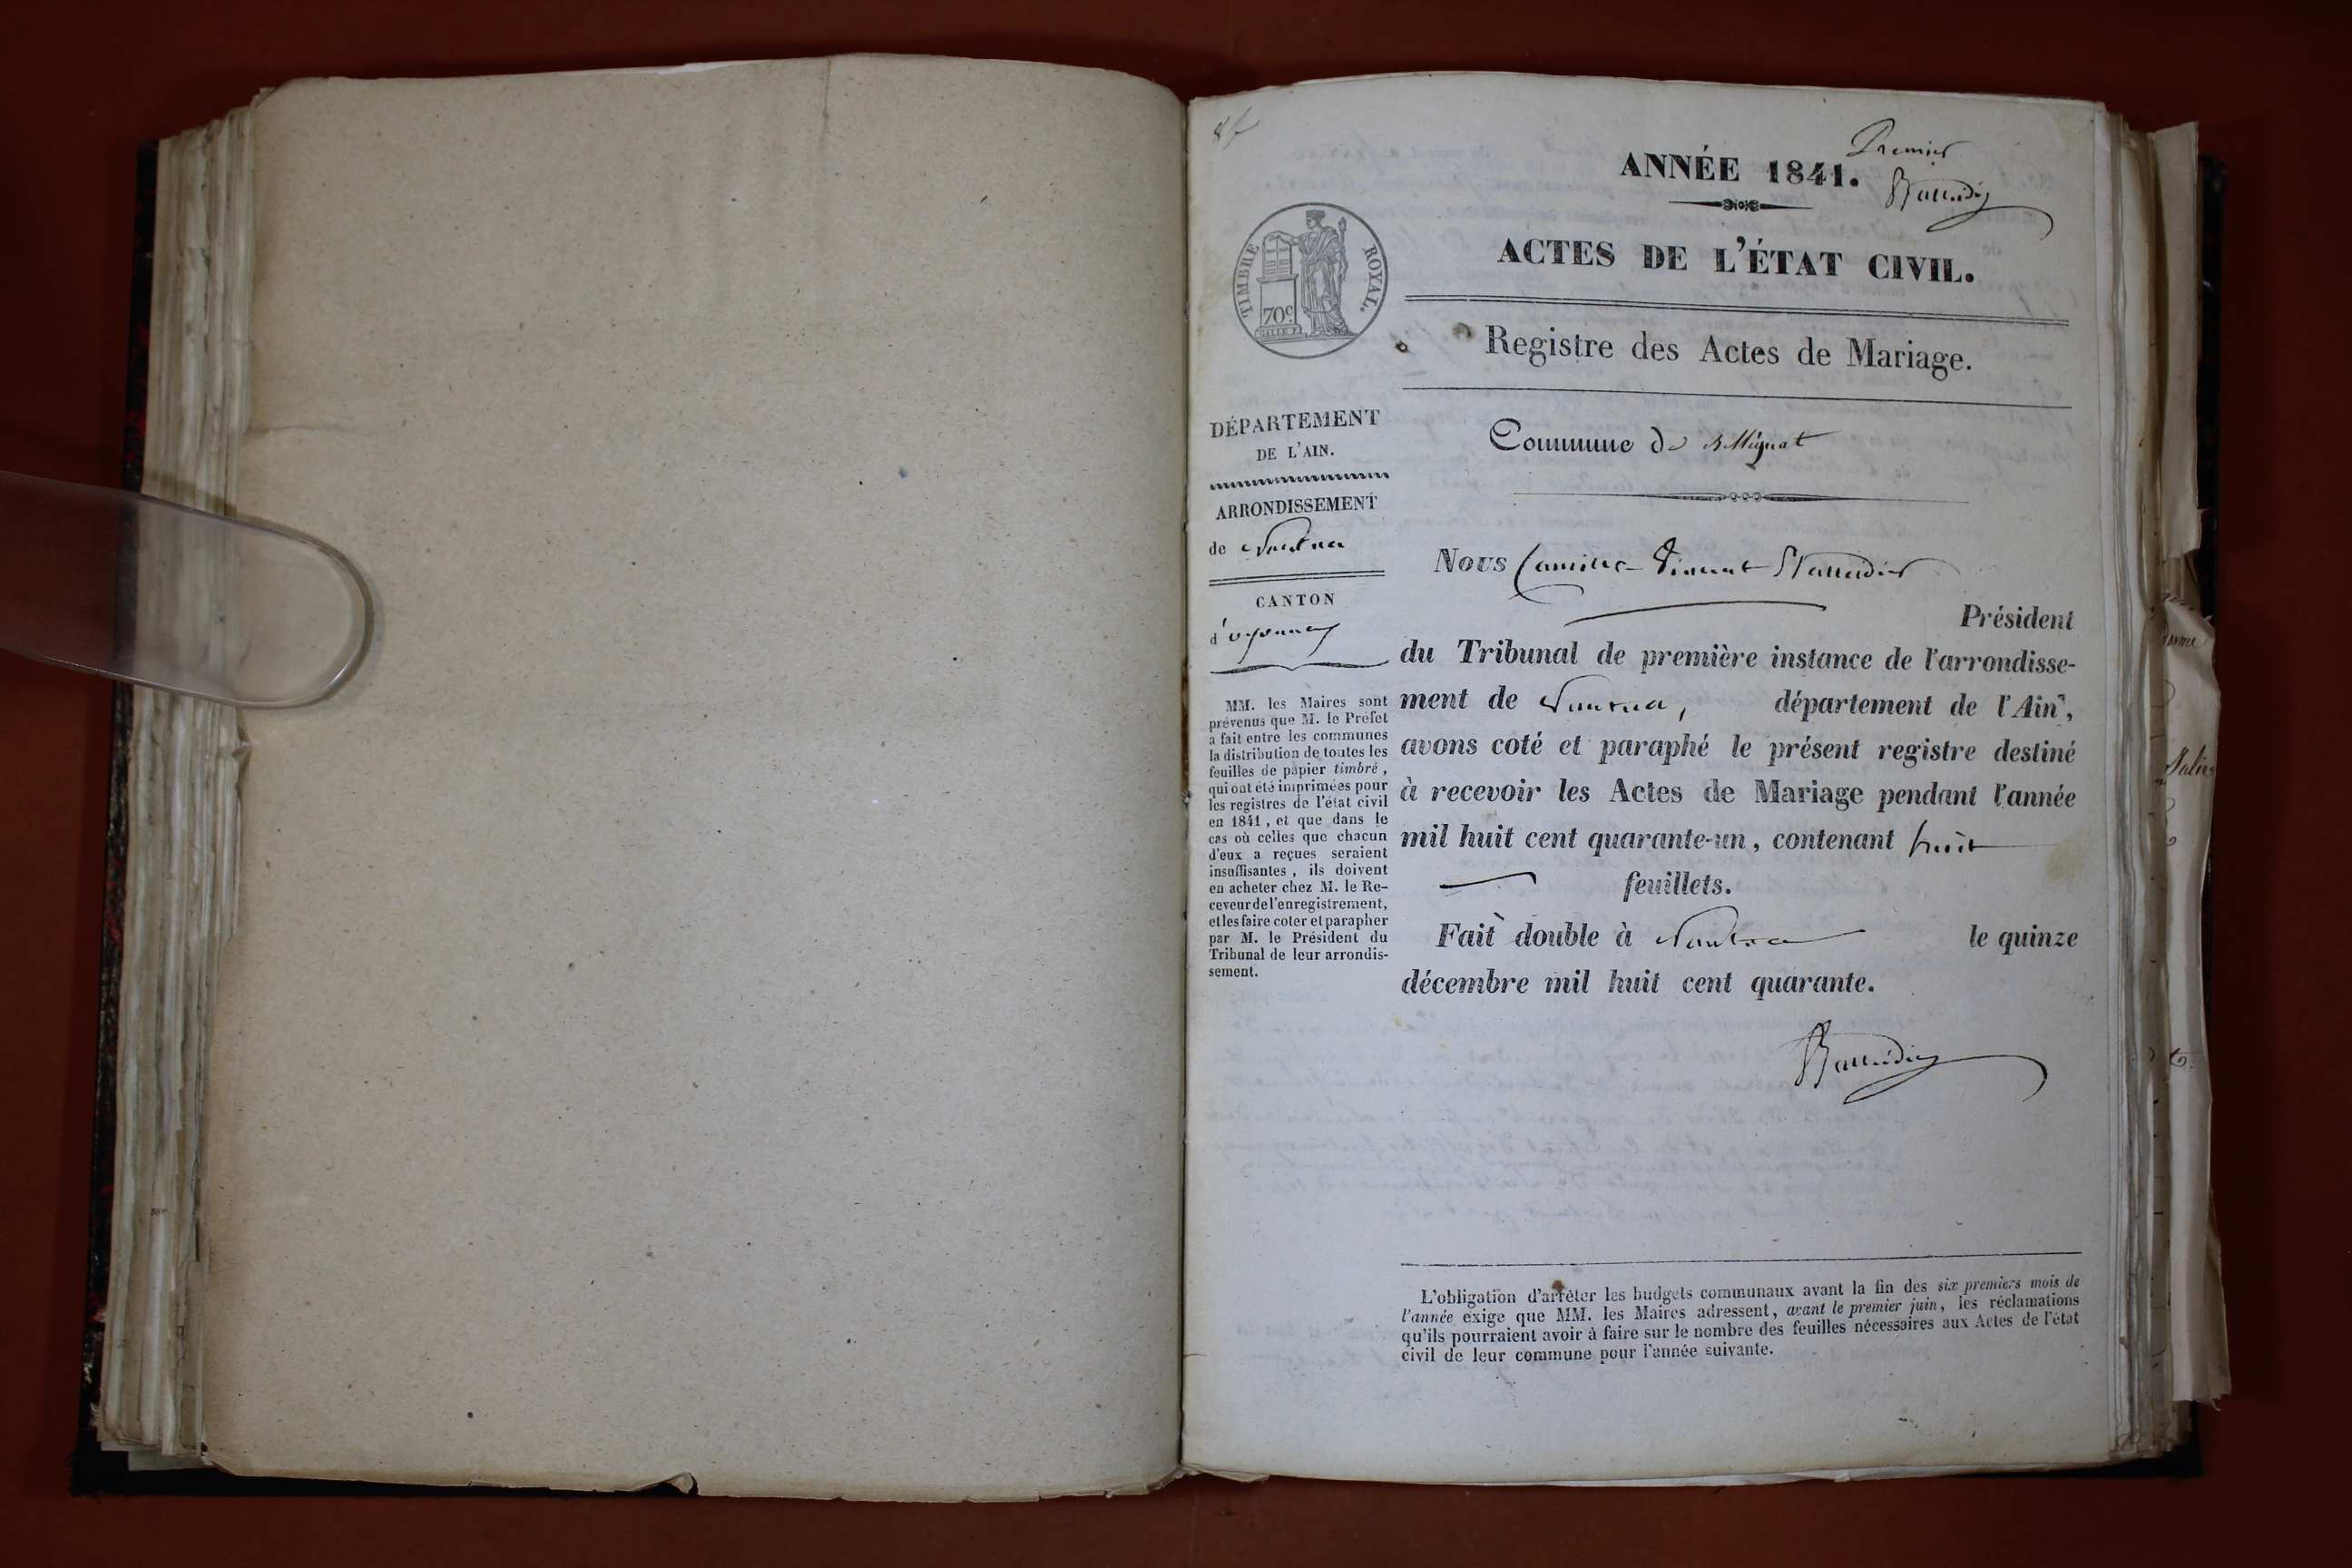 8 f
Premier
ANNÉE 1841.
ACTES DE L'ÉTAT CIVIL.
TIMBRE ROYAL.
70c
Registre des Actes de Mariage.
DÉPARTEMENT
DE L'AIN.
ARRONDISSEMENT
de Nantua
CANTON
d'oyonnax
MM. les Maires sont
prévenus que M. le Préfet
a fait entre les communes
la distribution de toutes les
feuilles de papier timbré,
qui ont été imprimées pour
les registres de l'état civil
en 1841, et que dans le
cas où celles que chacun
d'eux a reçues seraient
insuffisantes, ils doivent
en acheter chez M. le Re-
ceveur de l'enregistrement,
et les faire coter et parapher
par M. le Président du
Tribunal de leur arrondis-
sement.
Commune de Bellignat
Nous Camille Vincent
Président
du Tribunal de première instance de l'arrondisse-
ment de Nantua, département de l'Ain,
avons coté et paraphé le présent registre destiné
à recevoir les Actes de Mariage pendant l'année
mil huit cent quarante-un, contenant huit
feuillets.
Fait double à Nantua le quinze
décembre mil huit cent quarante.
L'obligation d'arrêter les budgets communaux avant la fin des six premiers mois de
l'année exige que MM. les Maires adressent, avant le premier juin, les réclamations
qu'ils pourraient avoir à faire sur le nombre des feuilles nécessaires aux Actes de l'état
civil de leur commune pour l'année suivante.